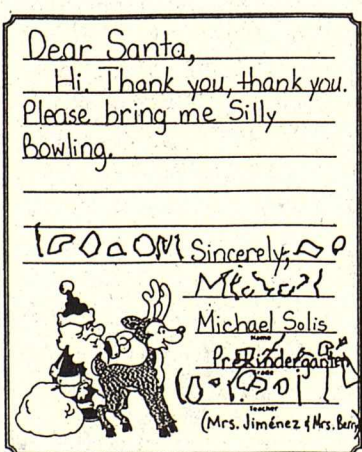 Dear Santa,
Hi. Thank you, thank you.
Please bring me Silly
Bowling.
Sincerely,
Michael Solis
Name
Prekindergarten
Grade
Teacher
(Mrs. Jiménez & Mrs. Berry